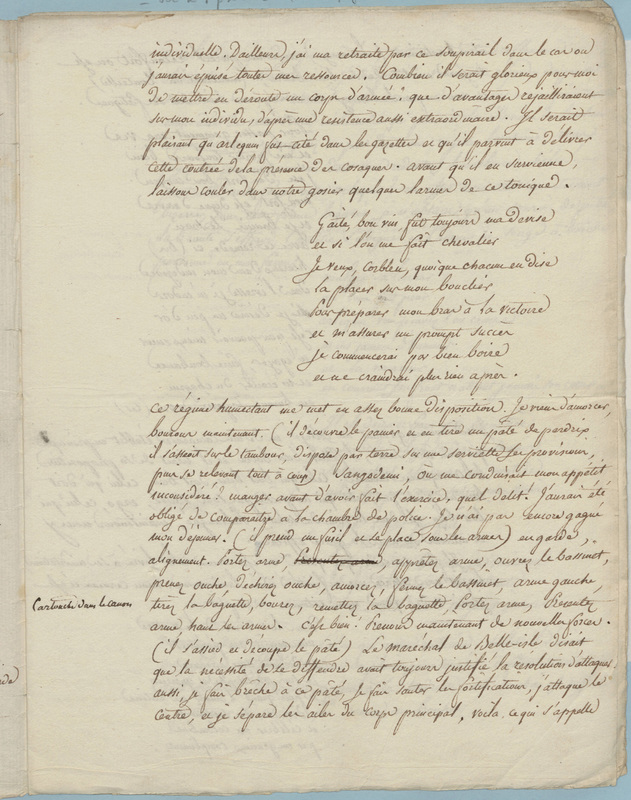 individuelle. D'ailleurs j'ai ma retraite par ce soupirail dans le cas où
j'aurais épuisé toutes mes ressources. Combien il serait glorieux pour moi
de mettre en déroute un corps d'armée. que d'avantages rejailliraient
sur mon individu, d'après une resistence aussi extraordinaire. Il serait
plaisant qu'arlequin fut cité dans les gazettes et qu'il parvint à délivrer
cette contrée de la présence des cosaques. avant qu'il en survienne,
laissons couler dans notre gosier quelques larmes de ce tonique.
Gaité, bon vin fut toujours ma devise
et si l'on me fait chevalier
Je veux, corbleu, quoique chacun en dise
la placer sur mon bouclier
Pour préparer mon bras à la victoire
et m'assurer un prompt succès
je commencerai par bien boire
et ne craindrai plus rien après.
ce régime humectant me met en assez bonne disposition. Je viens d'amorcer,
bourons maintenant. (il découvre le panier et en tire un pâté de perdrix
il s'asseoit sur le tambour, dispose par terre sur une serviette les provisions,
puis se relevant tout à coup) Sangodemi, où me conduirait mon appétit
inconsidéré? manger avant d'avoir fait l'exercice, quel délit! J'aurais été
obligé de comparaitre à la chambre de police. Je n'ai pas encore gagné
mon déjeuner. (il prend un fusil et se place sous les armes) en garde,
alignement. Portez arme, Présentez arme, apprêtez arme, ouvrez le bassinet,
prenez ouche déchirez ouche, amorcez, fermez le bassinet, arme gauche,
Cartouche dans le canon
tirez la baguette, bourez, remettez la baguette Portez arme, Présentez
arme haut les armes. C'est bien! Prenons maintenant de nouvelles forces.
(il s'assied et découpe le pâté) Le maréchal de Belle-isle disait
que la nécessité de se deffendre avait toujours justifié la resolution d'attaquer
aussi, je fais brêche à ce pâté, je fais sauter les fortifications, j'attaque le
centre, et je sépare les ailes du corps principal, voila, ce qui s'appelle